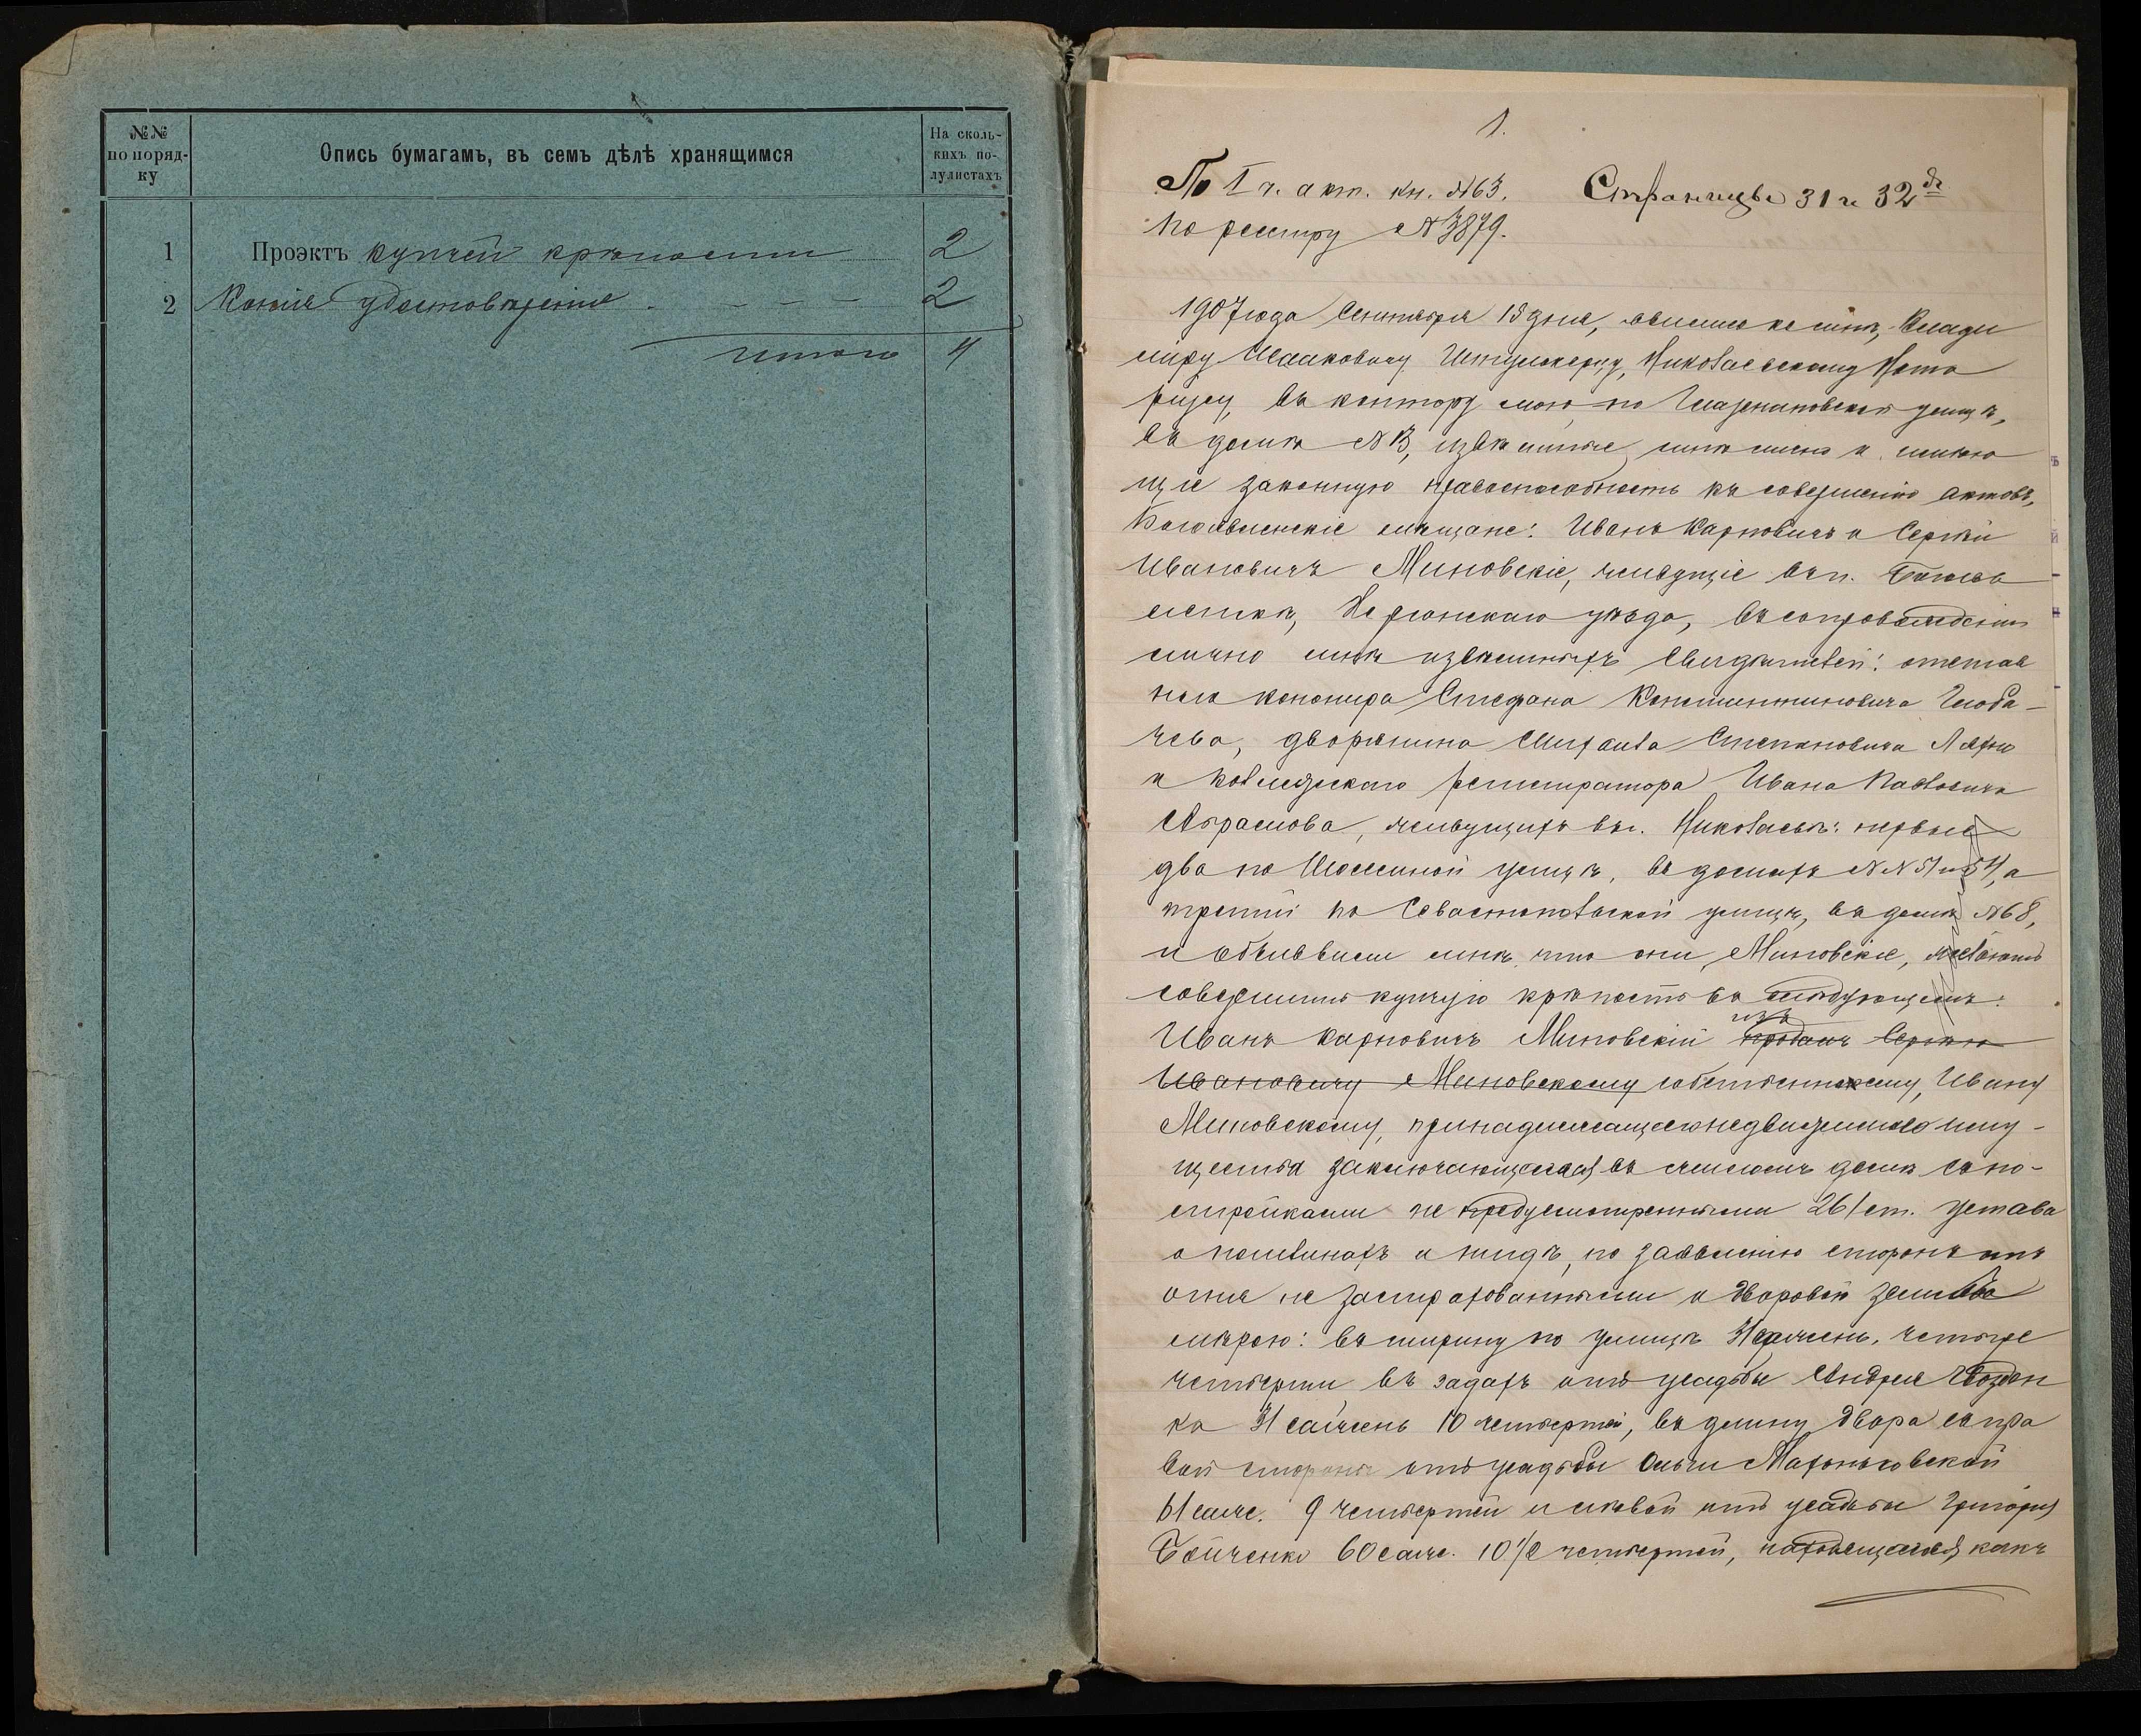 №№ по поряд-ку
Опись бумагамъ, въ семъ дѣлѣ хранящимся
На сколь-кихъ по-лулистахъ
1 Проэктъ купчей крѣпости 2
2 Копія удостовѣренія - - - 2
итого 4
1.
По I ч. акт. кн. №63. Страницы 31 и 32
По реестру № 3879.
1907 года Сентября 18 дня, явились ко мнѣ, Влади
міру Исааковичу Николаевскому Нота
ріусу, въ контору мою, по улицѣ,
въ домѣ № 13, извѣстные мнѣ лично и имѣю
щіе законную правоспособность къ совершенію актовъ,
Богоявленскіе мѣщане: Иванъ Карповичъ и Сергѣй
Ивановичъ Миновскіе, живущіе въ п. Богояв
ленскѣ, Херсонскаго уѣзда, въ сопровожденіи
лично мнѣ извѣстныхъ свидѣтелей: отстав
ного канонира Стефана Константиновича Глоба-
чева, дворянина Михаила Степановича
и коллежскаго регистратора Ивана Павловича
Абрамова, живущихъ въ г. Николаевѣ: первые
два по улицѣ, въ домахъ №№ 51 и 54, а
третій по Севастопольской улицѣ, въ домѣ №68,
и объявили мнѣ, что они, Миновскіе, желаютъ
совершить купчую крѣпость въ слѣдующемъ:
изъ
Иванъ Карповичъ Миновскій продалъ Сергѣю
Ивановичу Миновскому собственнаго ему, Ивану
Миновскому, принадлежащаго недвижимаго иму-
щества заключающагося въ жиломъ домѣ съ по-
стройками не предусмотренными 261 ст. Устава
о пошлинахъ и нигдѣ, по заявленію сторонъ отъ
огня не застрахованными и дворовой земли
мѣрою: въ ширину по улицѣ 31 сажень, четыре
четверти въ задахъ отъ усадьбы Андрея
ка 31 сажень 10 четвертей, въ длину двора съ пра
вой стороны отъ усадьбы Ольги
61 саж. 9 четвертей и лѣвой отъ усадьбы Григорія
Бойченко 60 саж. 10 1/2 четвертей, находящагося какъ